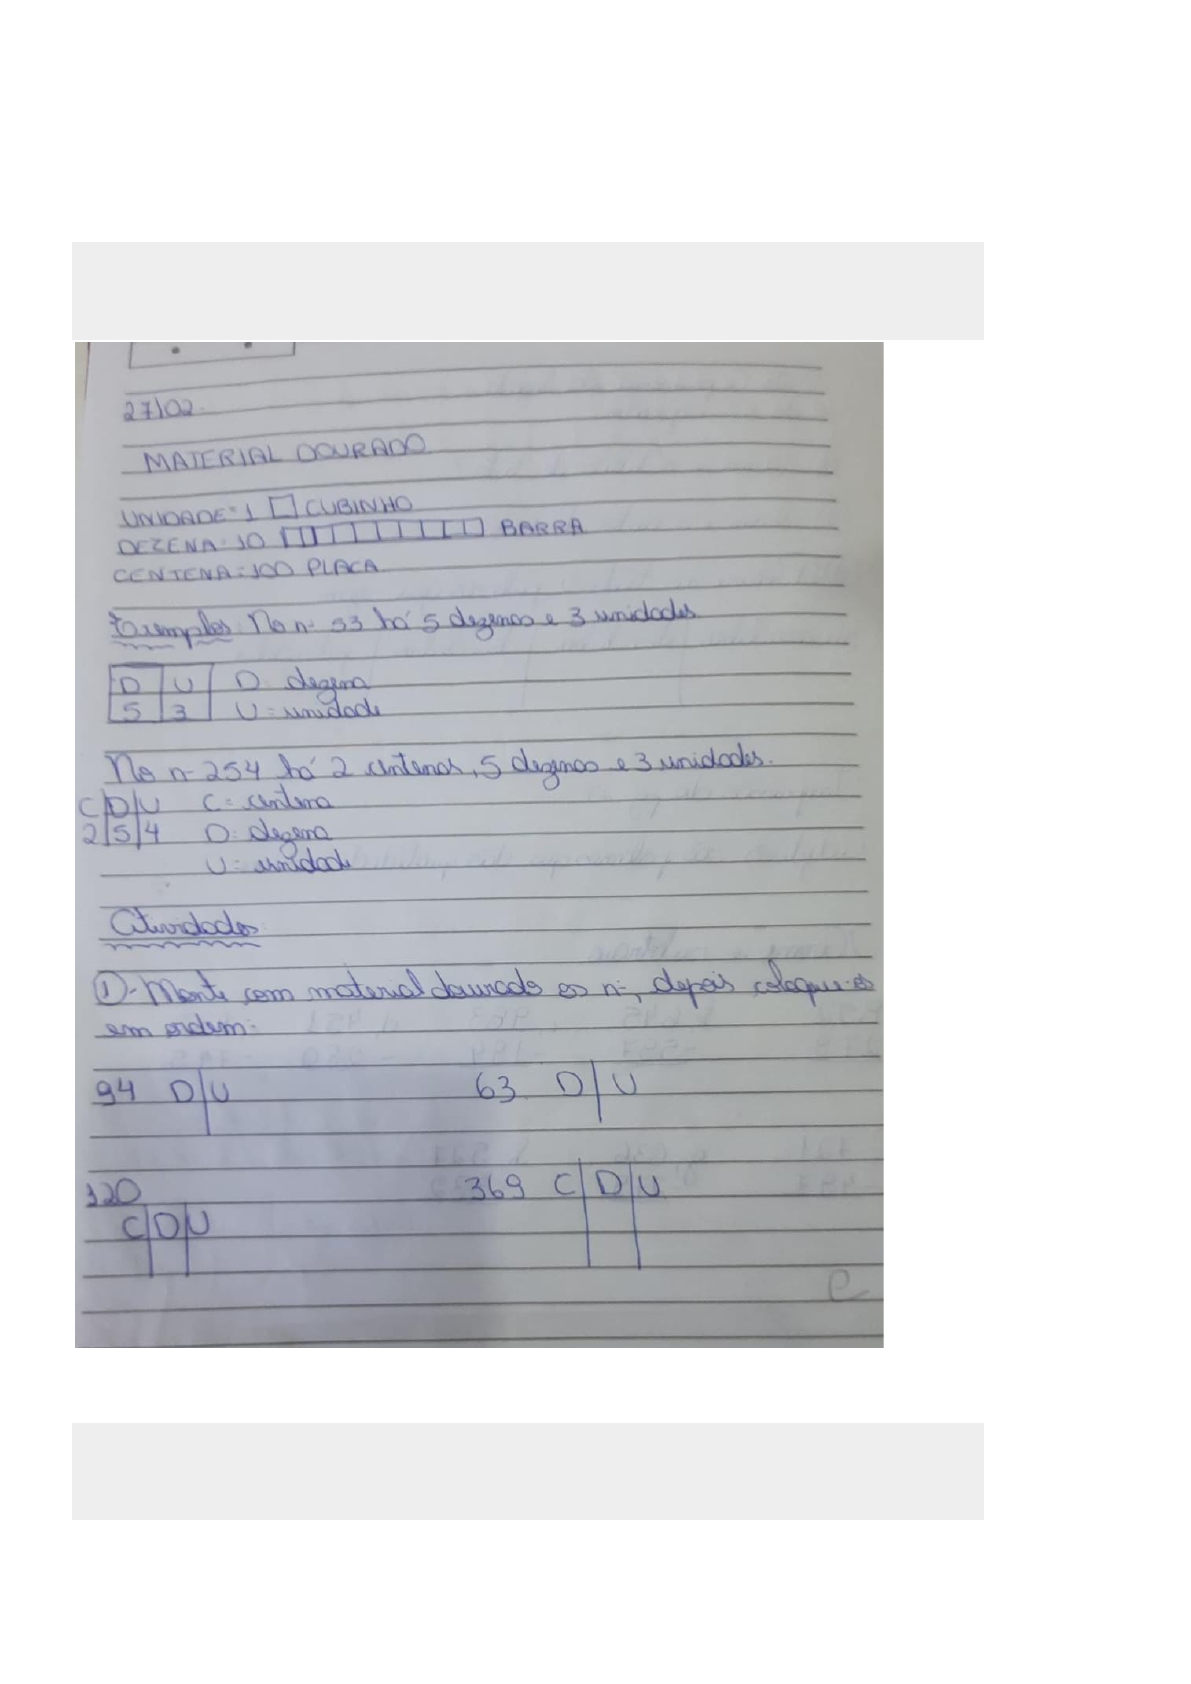 27/02.
MATERIAL DOURADO
UNIDADE=1 CUBINHO
DEZENA=10 BARRA
CENTENA=100 PLACA
Exemplos: No nº 53 há 5 dezenas e 3 unidades
D U D: dezena
5 3 U=unidade
No nº 254 há 2 centenas, 5 dezenas e 3 unidades.
C D U C= centena
2 5 4 D: dezena
U= unidade
Atividades:
1- Monte com material dourado os nº, depois coloque-os
em ordem:
94 D U 63 D U
120 369 C D U
C D U